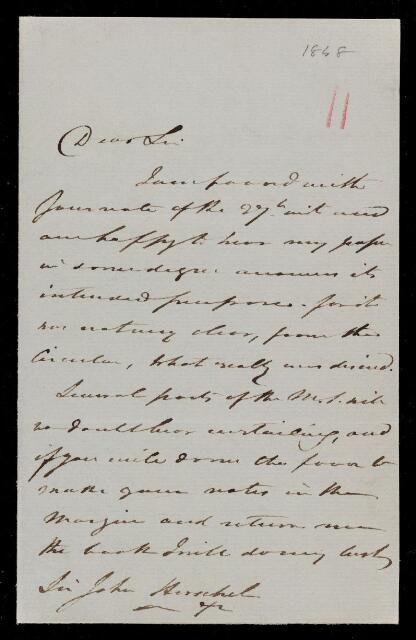 1848
11
Dear Sir
I am favored with
your note of the 27th inst and
am happy to hear my paper
in some degree answers its
intended purpose - for it
was not very clear, from the
Circular, what really was desired.
Several parts of the M.S. will
no doubt bear curtailing, and
if you will do me the favor to
make your notes in the
Margin and return me
the book I will do my best
Sir John Herschel